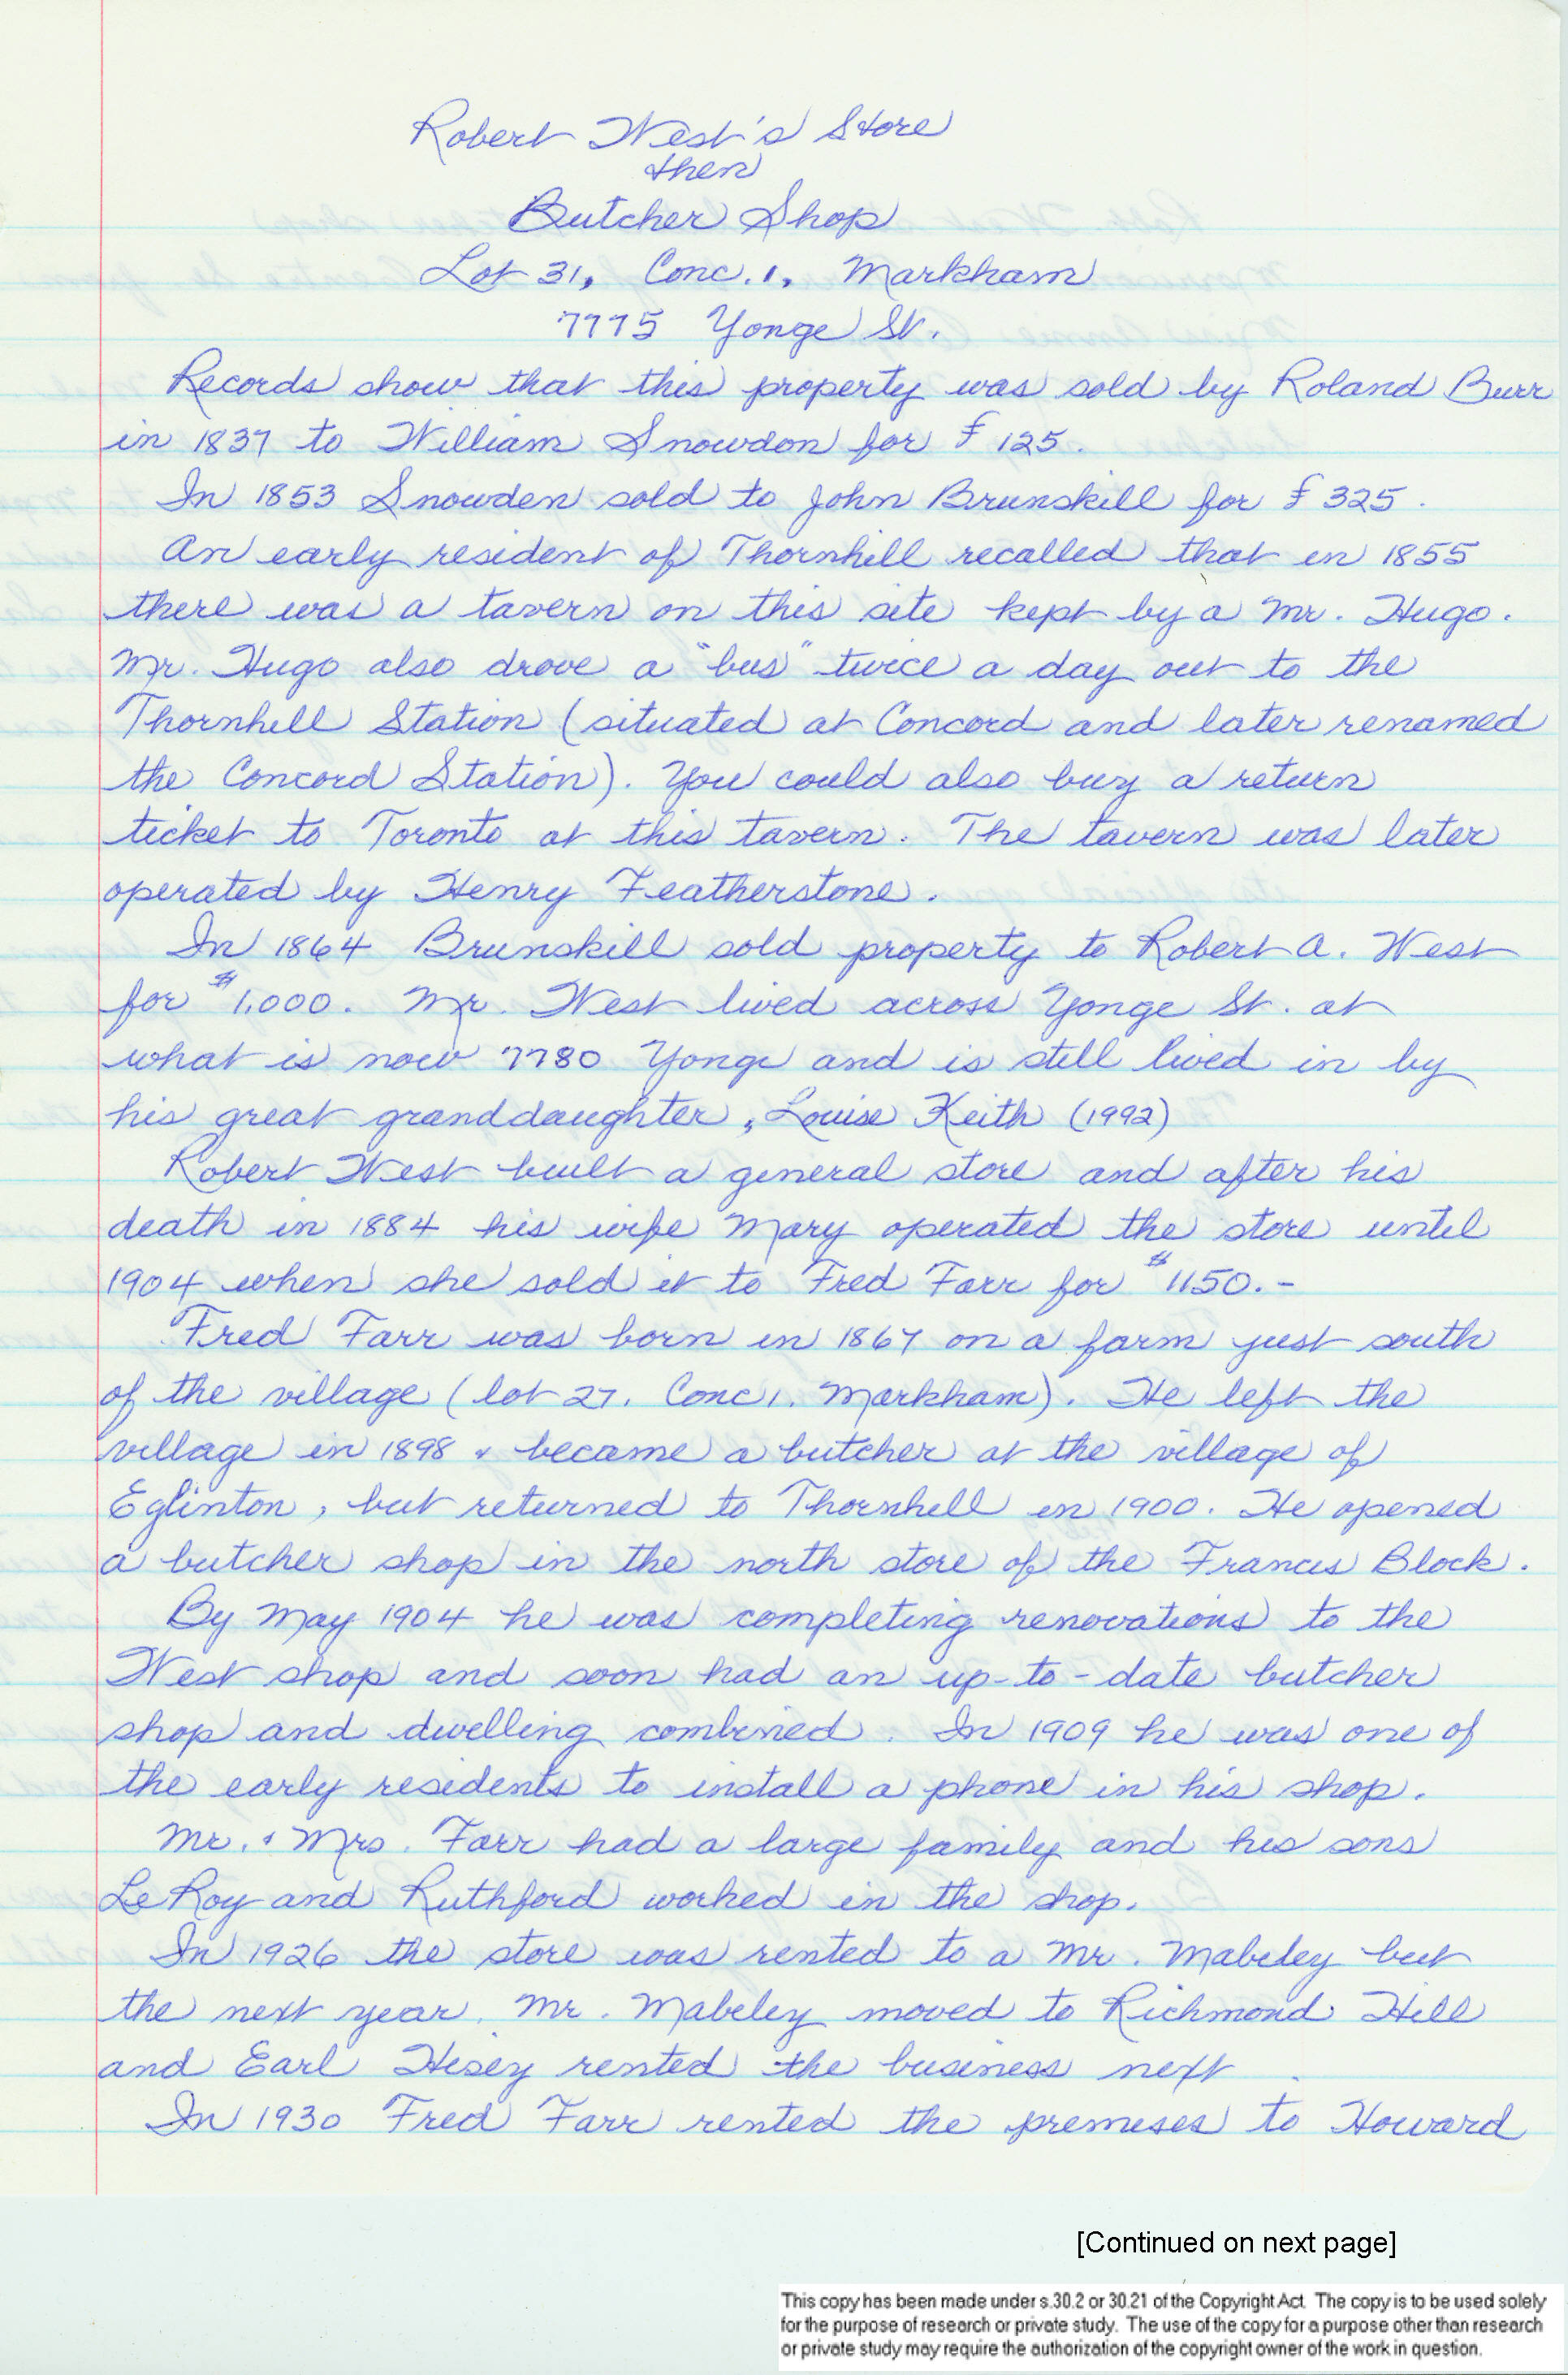 Robert West's Store
then
Butcher Shop
Lot 31, Conc. 1, Markham
7775 Yonge St.
Records show that this property was sold by Roland Burr
in 1837 to William Snowdon for £ 125.
In 1853 Snowden sold to John Brunskill for £ 325.
An early resident of Thornhill recalled that in 1855
there was a tavern on this site kept by a Mr. Hugo.
Mr. Hugo also drove a "bus" twice a day out to the
Thornhill Station (situated at Concord and later renamed
the Concord Station). You could also buy a return
ticket to Toronto at this tavern. The tavern was later
operated by Henry Featherstone.
In 1864 Brunskill sold property to Robert A. West
for $1,000. Mr. West lived across Yonge St. at
what is now 7780 Yonge and is still lived in by
his great granddaughter, Louise Keith (1992)
Robert West built a general store and after his
death in 1884 his wife Mary operated the store until
1904 when she sold it to Fred Farr for $1150.-
Fred Farr was born in 1867 on a farm just south
of the village (lot 27, Conc 1. Markham). He left the
village in 1898 & became a butcher at the village of
Eglinton, but returned to Thornhill in 1900. He opened
a butcher shop in the north store of the Francis Block.
By May 1904 he was completing renovations to the
West shop and soon had an up-to-date butcher
shop and dwelling combined. In 1909 he was one of
the early residents to install a phone in his shop.
Mr. & Mrs. Farr had a large family and his sons
LeRoy and Ruthford worked in the shop.
In 1926 the store was rented to a Mr. Mabeley but
the next year, Mr. Mabeley moved to Richmond Hill
and Earl Hisey rented the business next.
In 1930 Fred Farr rented the premises to Howard
[Continued on next page]
This copy has been made under s.30.2 or 30.21 of the Copyright Act. The copy is to be used solely
for the purpose of research or private study. The use of the copy for a purpose other than research
or private study may require the authorization of the copyright owner of the work in question.